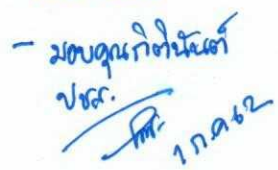 - มอบคุณกิตินันต์
ปชส.
1 ก.ค 62